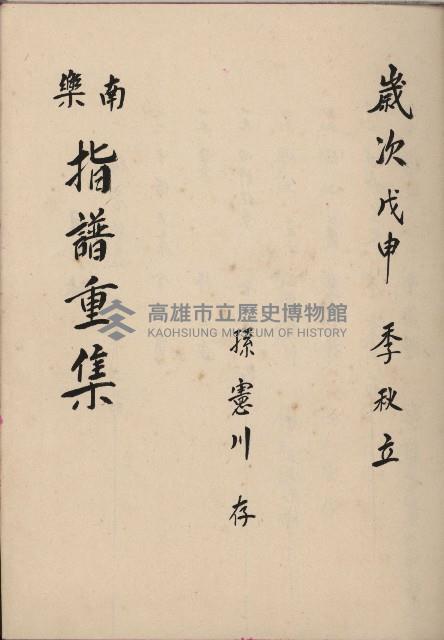 歲次戊申季秋立
孫憲川存
南樂
指譜重集
高雄市立歷史博物館
KAOHSIUNG MUSEUM OF HISTORY